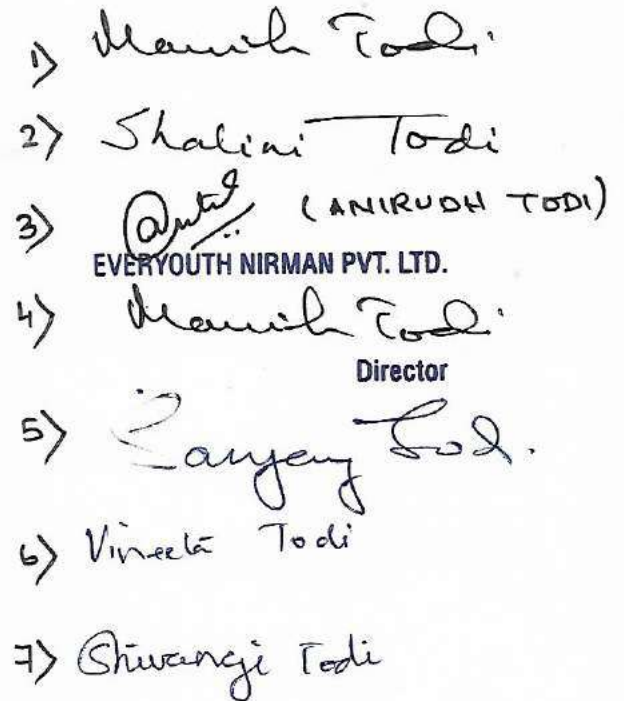 1) Manish Todi
2) Shalini Todi
3) (ANIRUDH TODI)
EVERYOUTH NIRMAN PVT. LTD.
4) Manish Todi
Director
5) Sanjeev Todi.
6) Vineeta Todi
7) Shivangi Todi